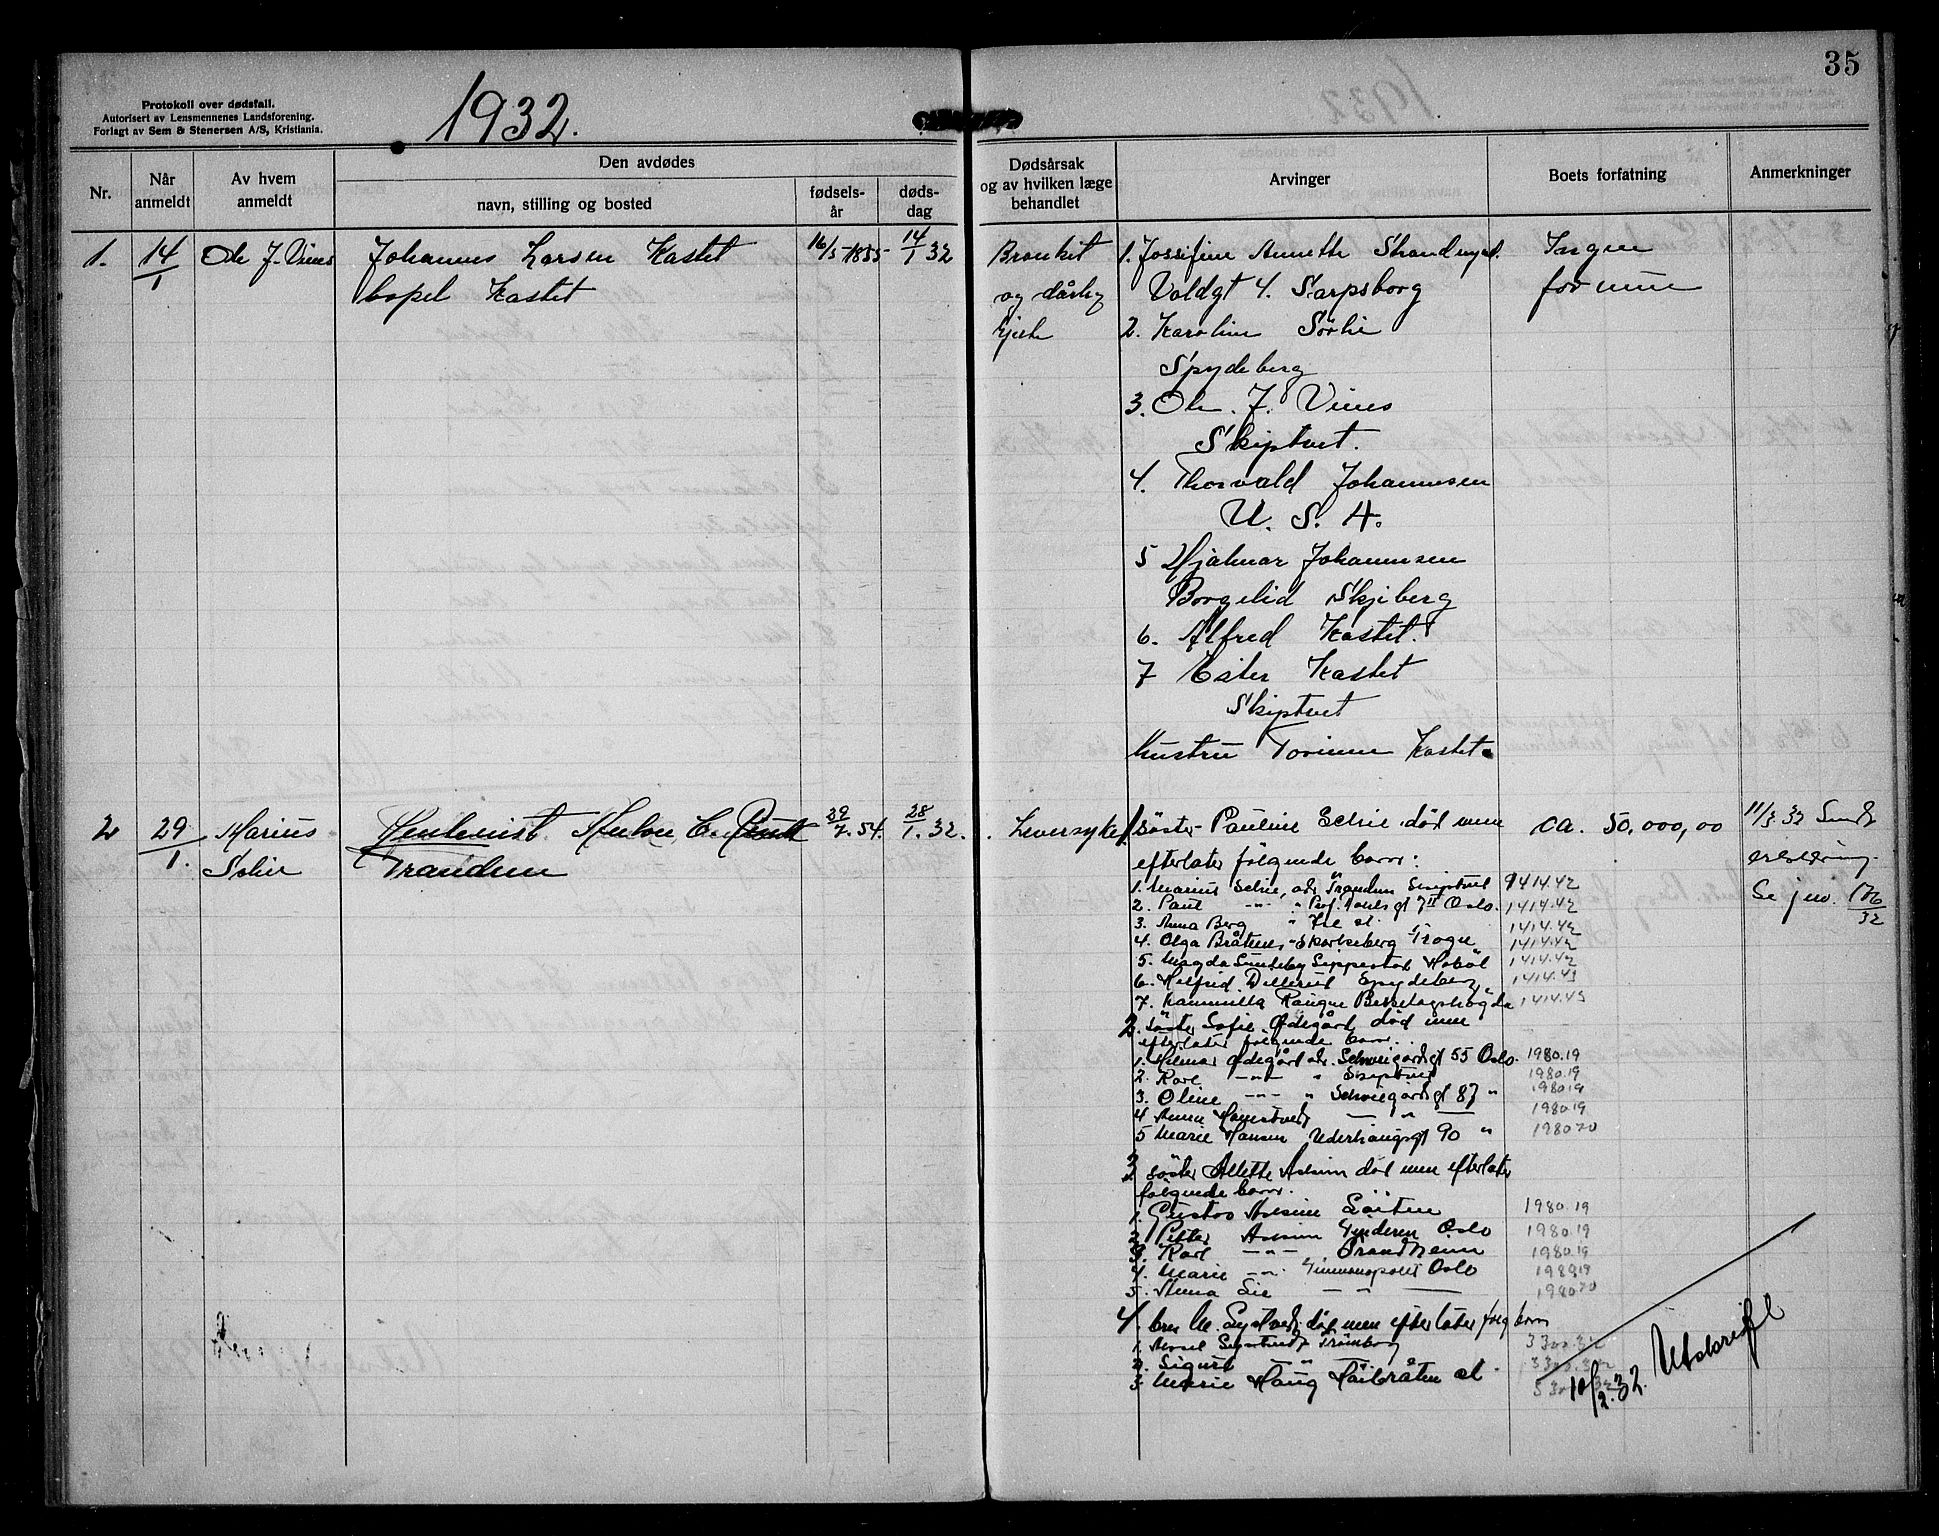 35
Protokoll over dødsfall.
Autorisert av Lensmennenes Landsforening.
Forlagt av Sem & Stenersen A/S, Kristiania.
1932.
Nr.
Når anmeldt
Av hvem anmeldt
Den avdødes
navn, stilling og bosted
fødselsår
dødsdag
Dødsårsak
og av hvilken læge
behandlet
Arvinger
Boets forfatning
Anmerkninger
1. 14/1 Ole J. Vines Johannes Larsen Kastet 16/5 1855 14/1 32
Kastet
Bronkit
og dårlig
hjerte
1. Jossefine Annette Strandmyr
Voldgt 4. Sarpsborg
2. Karoline Sørlie
Spydeberg
3. Ole J. Vines
Skiptvet.
4. Thorvald Johannesen
U. S. A.
5 Hjalmar Johannesen
Borgelid Skjeberg
6. Alfred Kastet.
7 Ester Kastet
Skiptvet
Hustru Torinne Kastet.
Ingen
formue
2 29/1. Marius Schie 29/7. 54. 28/1. 32.
Trandem
Leversyke
1. søster Pauline Schie død men
efterlater følgende barn:
1. Marius Schie, adr Trandem Skiptvet 1414.42
2. Paul -"- " Prof. Dahls gt 7 II Oslo. 1414.42
3. Anna Berg " st. 1414.42
4. Olga Bråten, Skorkeberg Trøgn 1414.42
5. Magda Sundby Hobøl 1414.42
6. Helfrid Dillerud Spydeberg 1414.43
7. Kammilla Rangne 1414.43
2. søster Sofie Ødegård død men
efterlater følgende barn.
1. Hilmar Ødegård adr. Schweigårdsgt 55 Oslo. 1980.19
2. Karl -"- " Skiptvet 1980.19
3. Oline -"- " Schweigårdsgt 87 " 1980.19
4 Anna 1980.19
5 Marie Hansen 90 " 198070
3 søster Allette død men efterlater
følgende barn.
1. Gustav 1980.19
2. Petter Oslo 1980.19
3. Karl -"- Trondheim 1980.19
4. Marie -"- Oslo 1980.19
5. Anna Lie 198070
4. bror død men efterlater følg barn
1. Trømborg 3300.32
2. Sigurd 3300.32
3 Marie Haug st.
ca. 50,000,00
11/3 32 Sendt
erklæring.
Se jnr. 176/32
10/2. 32. Utskrift